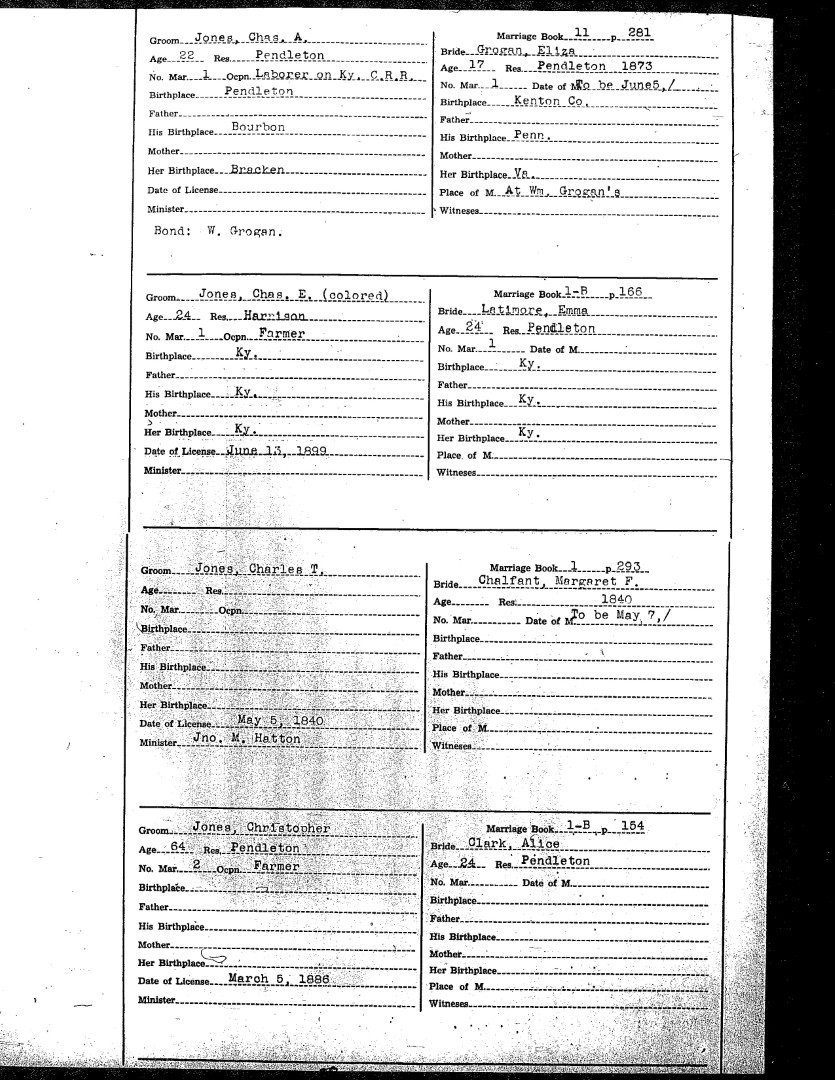 Groom Jones, Chas. A.
Age 22 Res. Pendleton
No. Mar. 1 Ocpn. Laborer on Ky. C.R.R.
Birthplace Pendleton
Father
His Birthplace Bourbon
Mother
Her Birthplace Bracken
Date of License
Minister
Bond: W. Grogan.
Marriage Book 11 p. 281
Bride Grogan, Eliza
Age 17 Res. Pendleton 1873
No. Mar. 1 Date of M. To be June5,/
Birthplace Kenton Co.
Father
His Birthplace Penn.
Mother
Her Birthplace Va.
Place of M. At Wm. Grogan's
Witnesses
Groom Jones, Chas. E. (colored)
Age 24 Res. Harrison
No. Mar. 1 Ocpn. Farmer
Birthplace Ky.
Father
His Birthplace Ky.
Mother
Her Birthplace Ky.
Date of License June 13, 1899
Minister
Marriage Book 1-B p. 166
Bride Latimore, Emma
Age 24 Res. Pendleton
No. Mar. 1 Date of M.
Birthplace Ky.
Father
His Birthplace Ky.
Mother
Her Birthplace Ky.
Place of M.
Witnesses
Groom Jones, Charles T.
Age Res.
No. Mar. Ocpn.
Birthplace
Father
His Birthplace
Mother
Her Birthplace
Date of License May 5, 1840
Minister Jno. M. Hatton
Marriage Book 1 p. 293
Bride Chalfant, Margaret F.
Age Res. 1840
No. Mar. Date of M. To be May 7,/
Birthplace
Father
His Birthplace
Mother
Her Birthplace
Place of M.
Witnesses
Groom Jones, Christopher
Age 64 Res. Pendleton
No. Mar. 2 Ocpn. Farmer
Birthplace
Father
His Birthplace
Mother
Her Birthplace
Date of License March 5, 1886
Minister
Marriage Book 1-B p. 154
Bride Clark, Alice
Age 24 Res. Pendleton
No. Mar. Date of M.
Birthplace
Father
His Birthplace
Mother
Her Birthplace
Place of M.
Witnesses